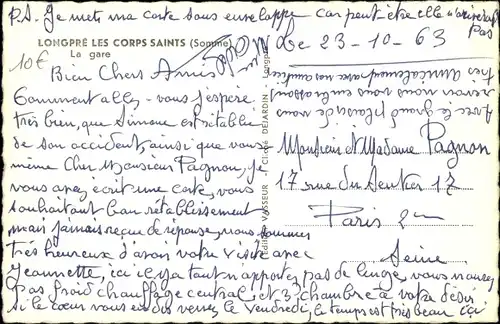 P.S. Je mets ma carte sous enveloppe car peut être elle n'arriverait pas
LONGPRÉ LES CORPS SAINTS (Somme)
La gare
10€
Le 23-10-63
Bien Chers Amis
Comment allez-vous j'espère
très bien, que Simone est rétablie
de son accident ainsi que vous
même Cher Monsieur Pagnon, je
vous avez écrit une carte, vous
souhaitant bon rétablissement
mais jamais reçue de réponse, nous sommes
très heureux d'avoir votre visite avec
Jeannette, ici il y a tout n'apportez pas de linge, vous n'aurez
pas froid chauffage central, et 3 chambre à votre désir
si le cœur vous en dis venez le Vendredi, le temps est très beau ici
Avec le grand plaisir de vous
revoir nous vous embrassons
très amicalement
Monsieur et Madame Pagnon
17 rue du Sentier 17
Paris 2em
Seine
VASSEUR
CLICHÉ DEJARDIN - Longpré